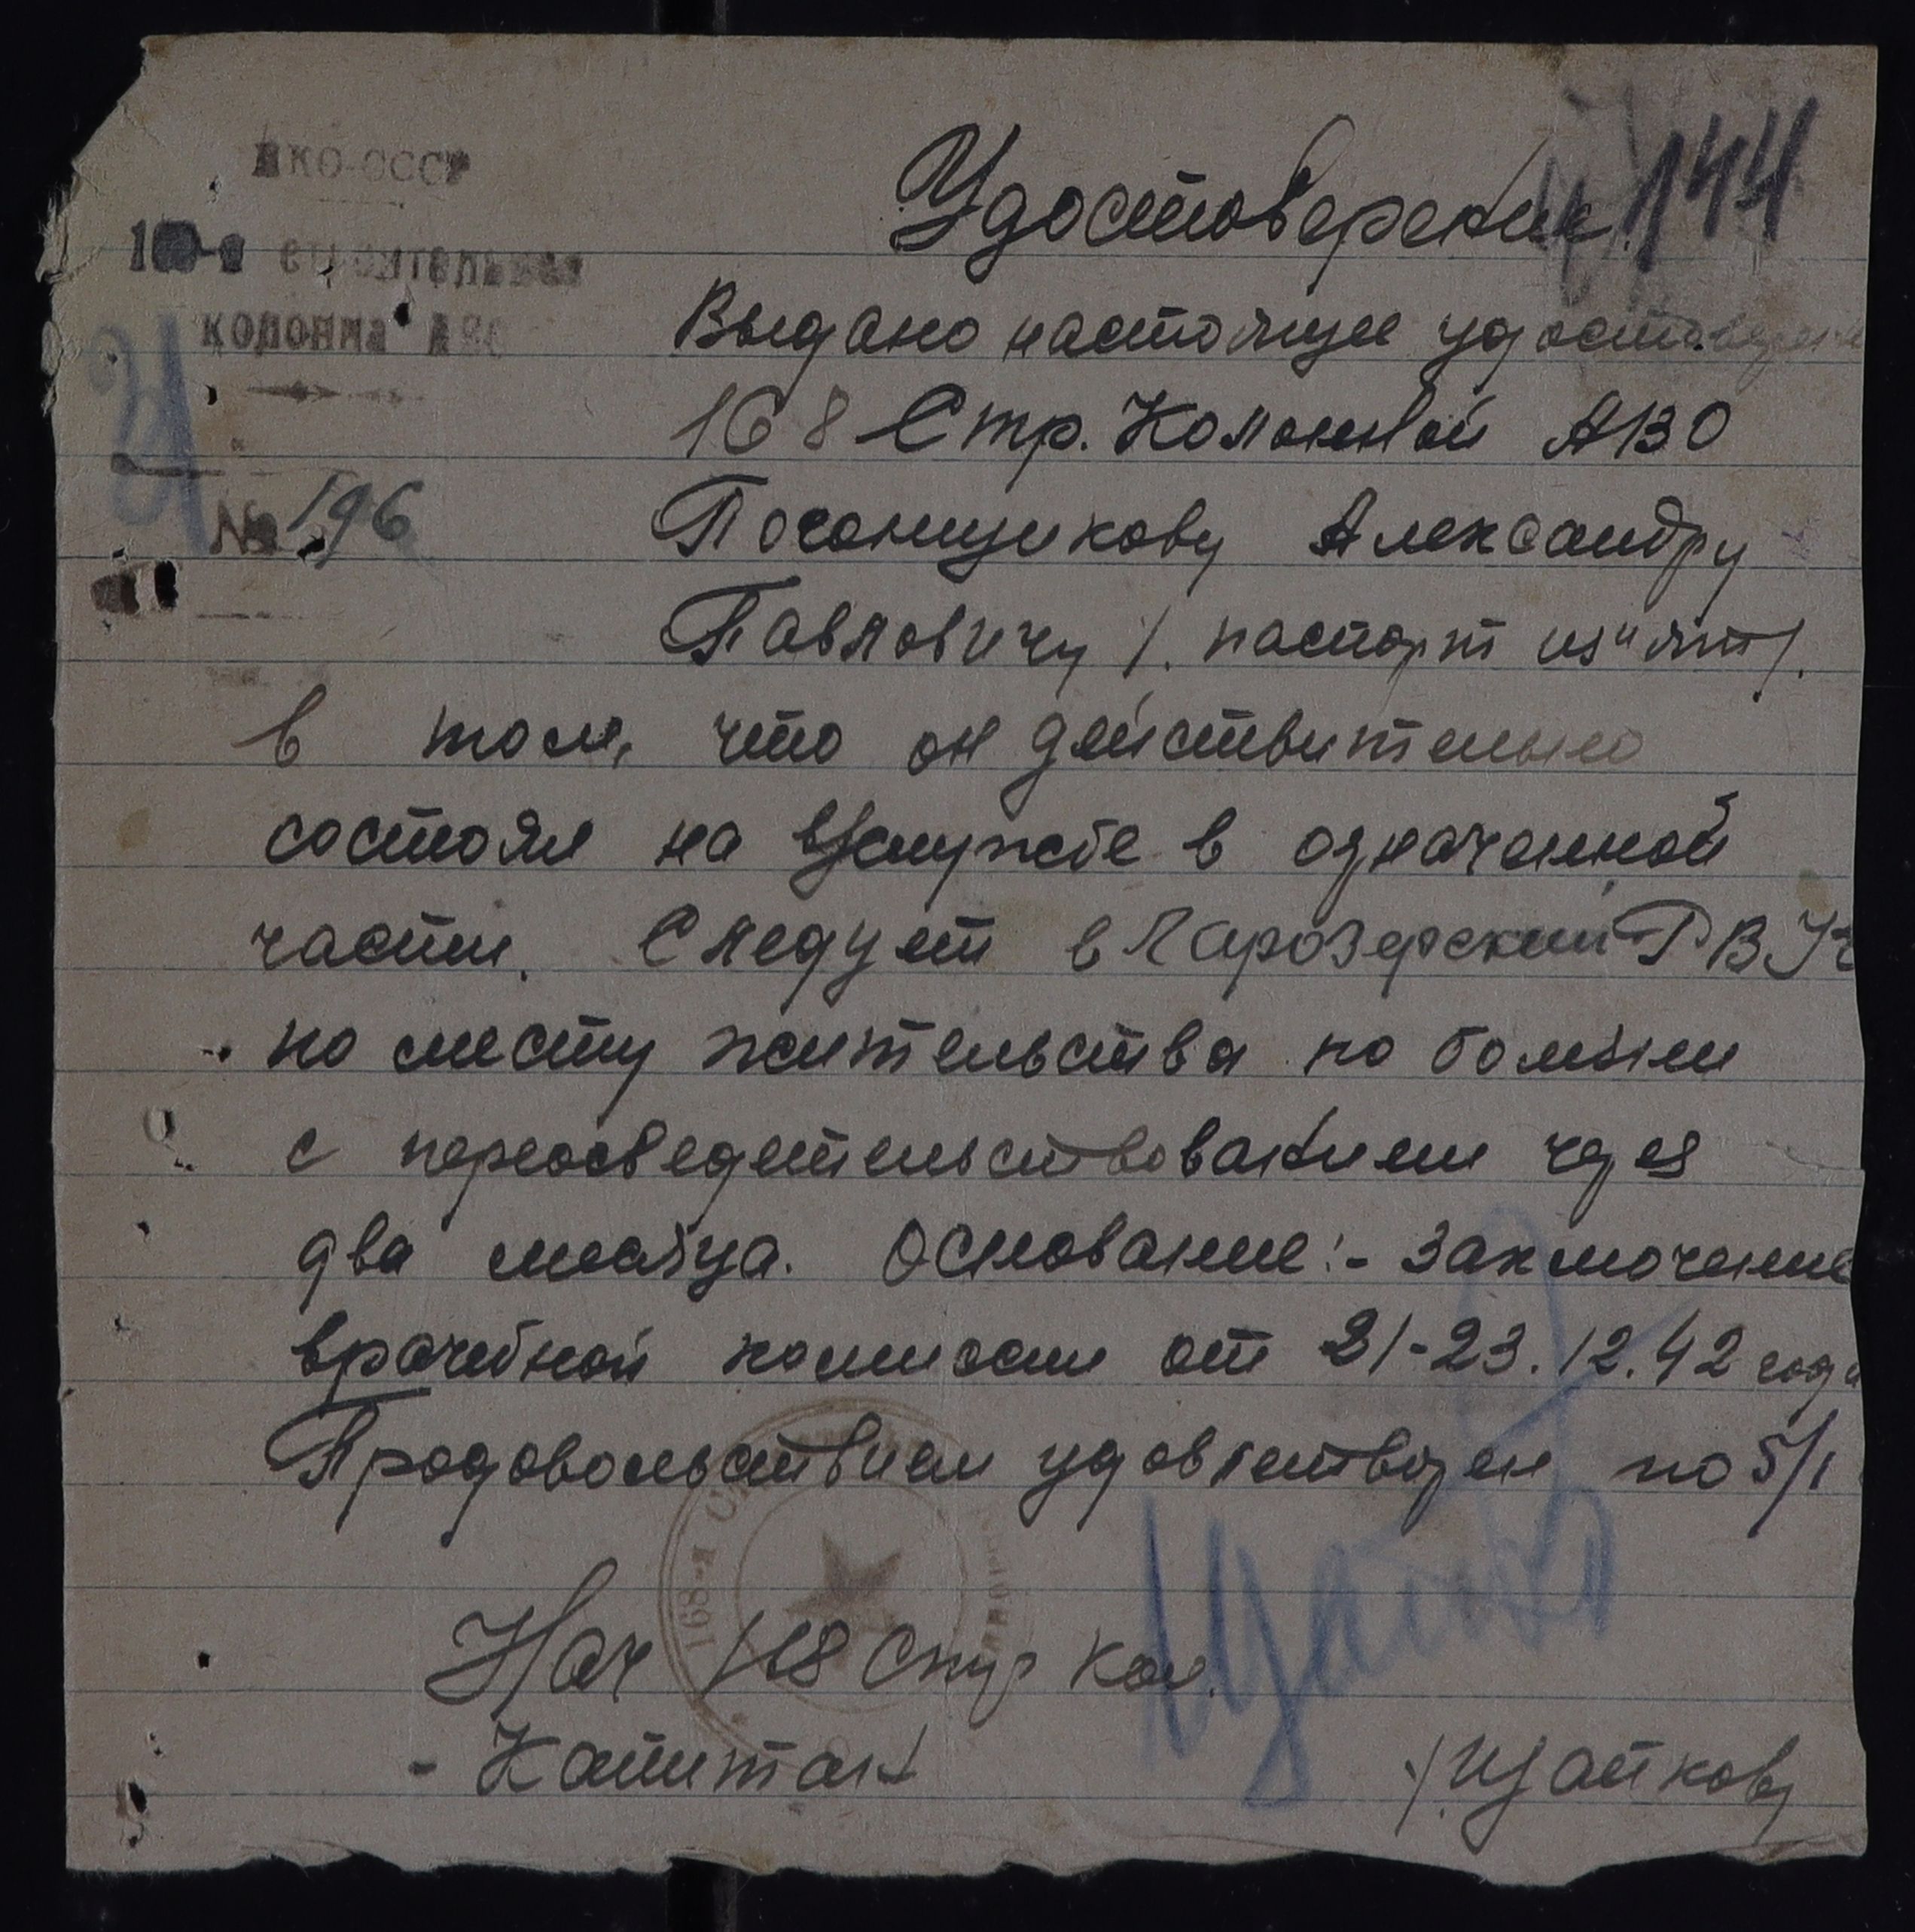 НКО-СССР
строительная
колонна АВО
№ 196
144
Удостоверение.
Выдано настоящее удостоверен
168 Стр. Колонной АВО
Погонщикову Александру
Павловичу /. паспорт из"ят/.
в том, что он действительно
состоял на службе в означенной
части. Следует в Чарозерский РВК
по месту жительства по болезни
с переосведетельствованием через
два месяца. Основание:- Заключение
врачебной комиссии от 21-23.12.42 года
Продовольствием удовлетворен по 5/I
168-я
Нач 168 Стр Кол.
- Капитан